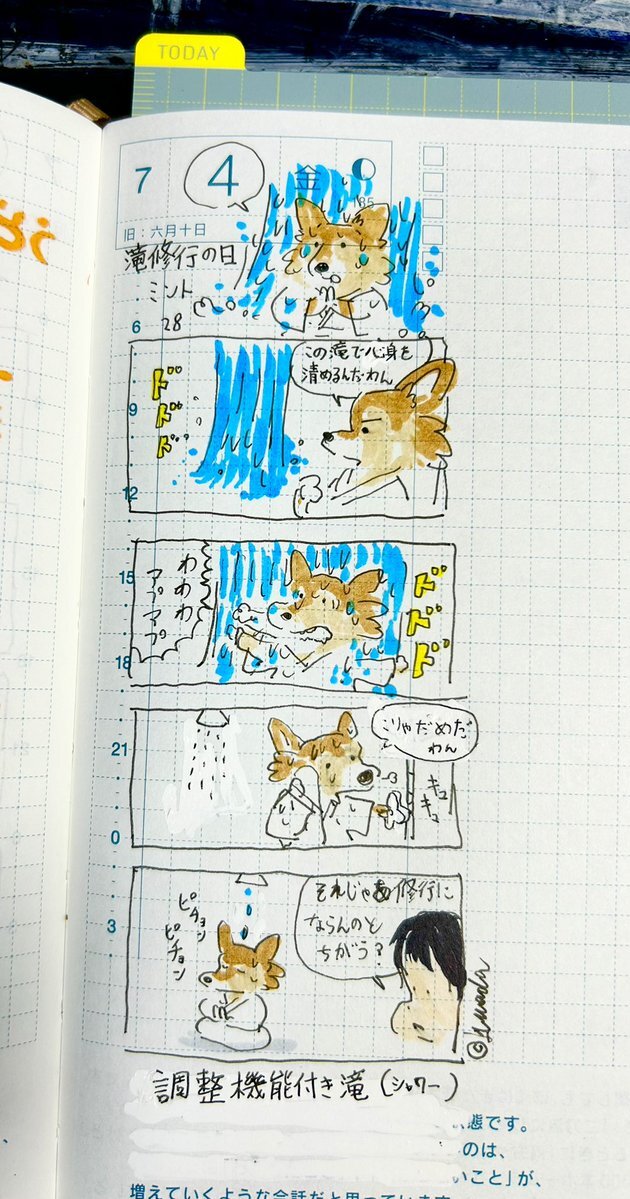 TODAY
7
4
金
185
旧：六月十日
滝修行の日
ミント
28
6
この滝で心身を
清めるんだわん
ドドド
9
12
わわわ
アプアプ
ドドド
15
18
こりゃだめだ
わん
キュキュ
21
0
それじゃあ修行に
ならんのと
ちがう？
ピチョン
ピチョン
3
調整機能付き滝（シャワー）
態です。
のは、
いこと」が、
増えていくような会話だと思っています